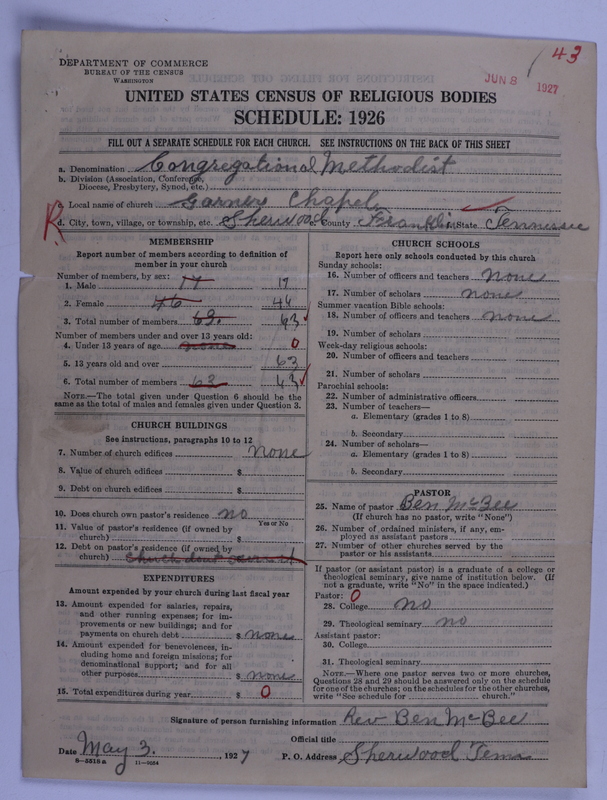 43
DEPARTMENT OF COMMERCE
BUREAU OF THE CENSUS
WASHINGTON
JUN 8 1927
UNITED STATES CENSUS OF RELIGIOUS BODIES
SCHEDULE: 1926
FILL OUT A SEPARATE SCHEDULE FOR EACH CHURCH. SEE INSTRUCTIONS ON THE BACK OF THIS SHEET
a. Denomination Congregational Methodist
b. Division (Association, Conference,
Diocese, Presbytery, Synod, etc.)
c. Local name of church Garners Chapel
R d. City, town, village, or township, etc. Sherwood e. County Franklin State Tennessee
MEMBERSHIP
Report number of members according to definition of
member in your church
Number of members, by sex:
1. Male 17 17
2. Female 46 46
3. Total number of members 63. 63
Number of members under and over 13 years old:
4. Under 13 years of age none 0
5. 13 years old and over 63
6. Total number of members 63 63
NOTE.—The total given under Question 6 should be
same as the total of males and females given under Question 3.
CHURCH BUILDINGS
See instructions, paragraphs 10 to 12
7. Number of church edifices none
8. Value of church edifices $
9. Debt on church edifices $
10. Does church own pastor's residence no
Yes or No
11. Value of pastor's residence (if owned by
church) $
12. Debt on pastor's residence (if owned by
church)
EXPENDITURES
Amount expended by your church during last fiscal year
13. Amount expended for salaries, repairs,
and other running expenses; for im-
provements or new buildings; and for
payments on church debt $ none
14. Amount expended for benevolences, in-
cluding home and foreign missions; for
denominational support; and for all
other purposes $ none
15. Total expenditures during year $ 0
CHURCH SCHOOLS
Report here only schools conducted by this church
Sunday schools:
16. Number of officers and teachers none
17. Number of scholars none
Summer vacation Bible schools:
18. Number of officers and teachers none
19. Number of scholars
Week-day religious schools:
20. Number of officers and teachers
21. Number of scholars
Parochial schools:
22. Number of administrative officers
23. Number of teachers—
a. Elementary (grades 1 to 8)
b. Secondary
24. Number of scholars—
a. Elementary (grades 1 to 8)
b. Secondary
PASTOR
25. Name of pastor Ben McBee
(If church has no pastor, write "None")
26. Number of ordained ministers, if any, em-
ployed as assistant pastors
27. Number of other churches served by the
pastor or his assistants
If pastor (or assistant pastor) is a graduate of a college or
theological seminary, give name of institution below. (If
not a graduate, write "No" in the space indicated.)
Pastor: 0
28. College no
29. Theological seminary no
Assistant pastor:
30. College
31. Theological seminary
NOTE.—Where one pastor serves two or more churches,
Questions 28 and 29 should be answered only on the schedule
for one of the churches; on the schedules for the other churches,
write "See schedule for church."
Signature of person furnishing information Rev Ben McBee
Official title
Date May 3. , 1927 P. O. Address Sherwood Tenn
8-2518a 11-9054